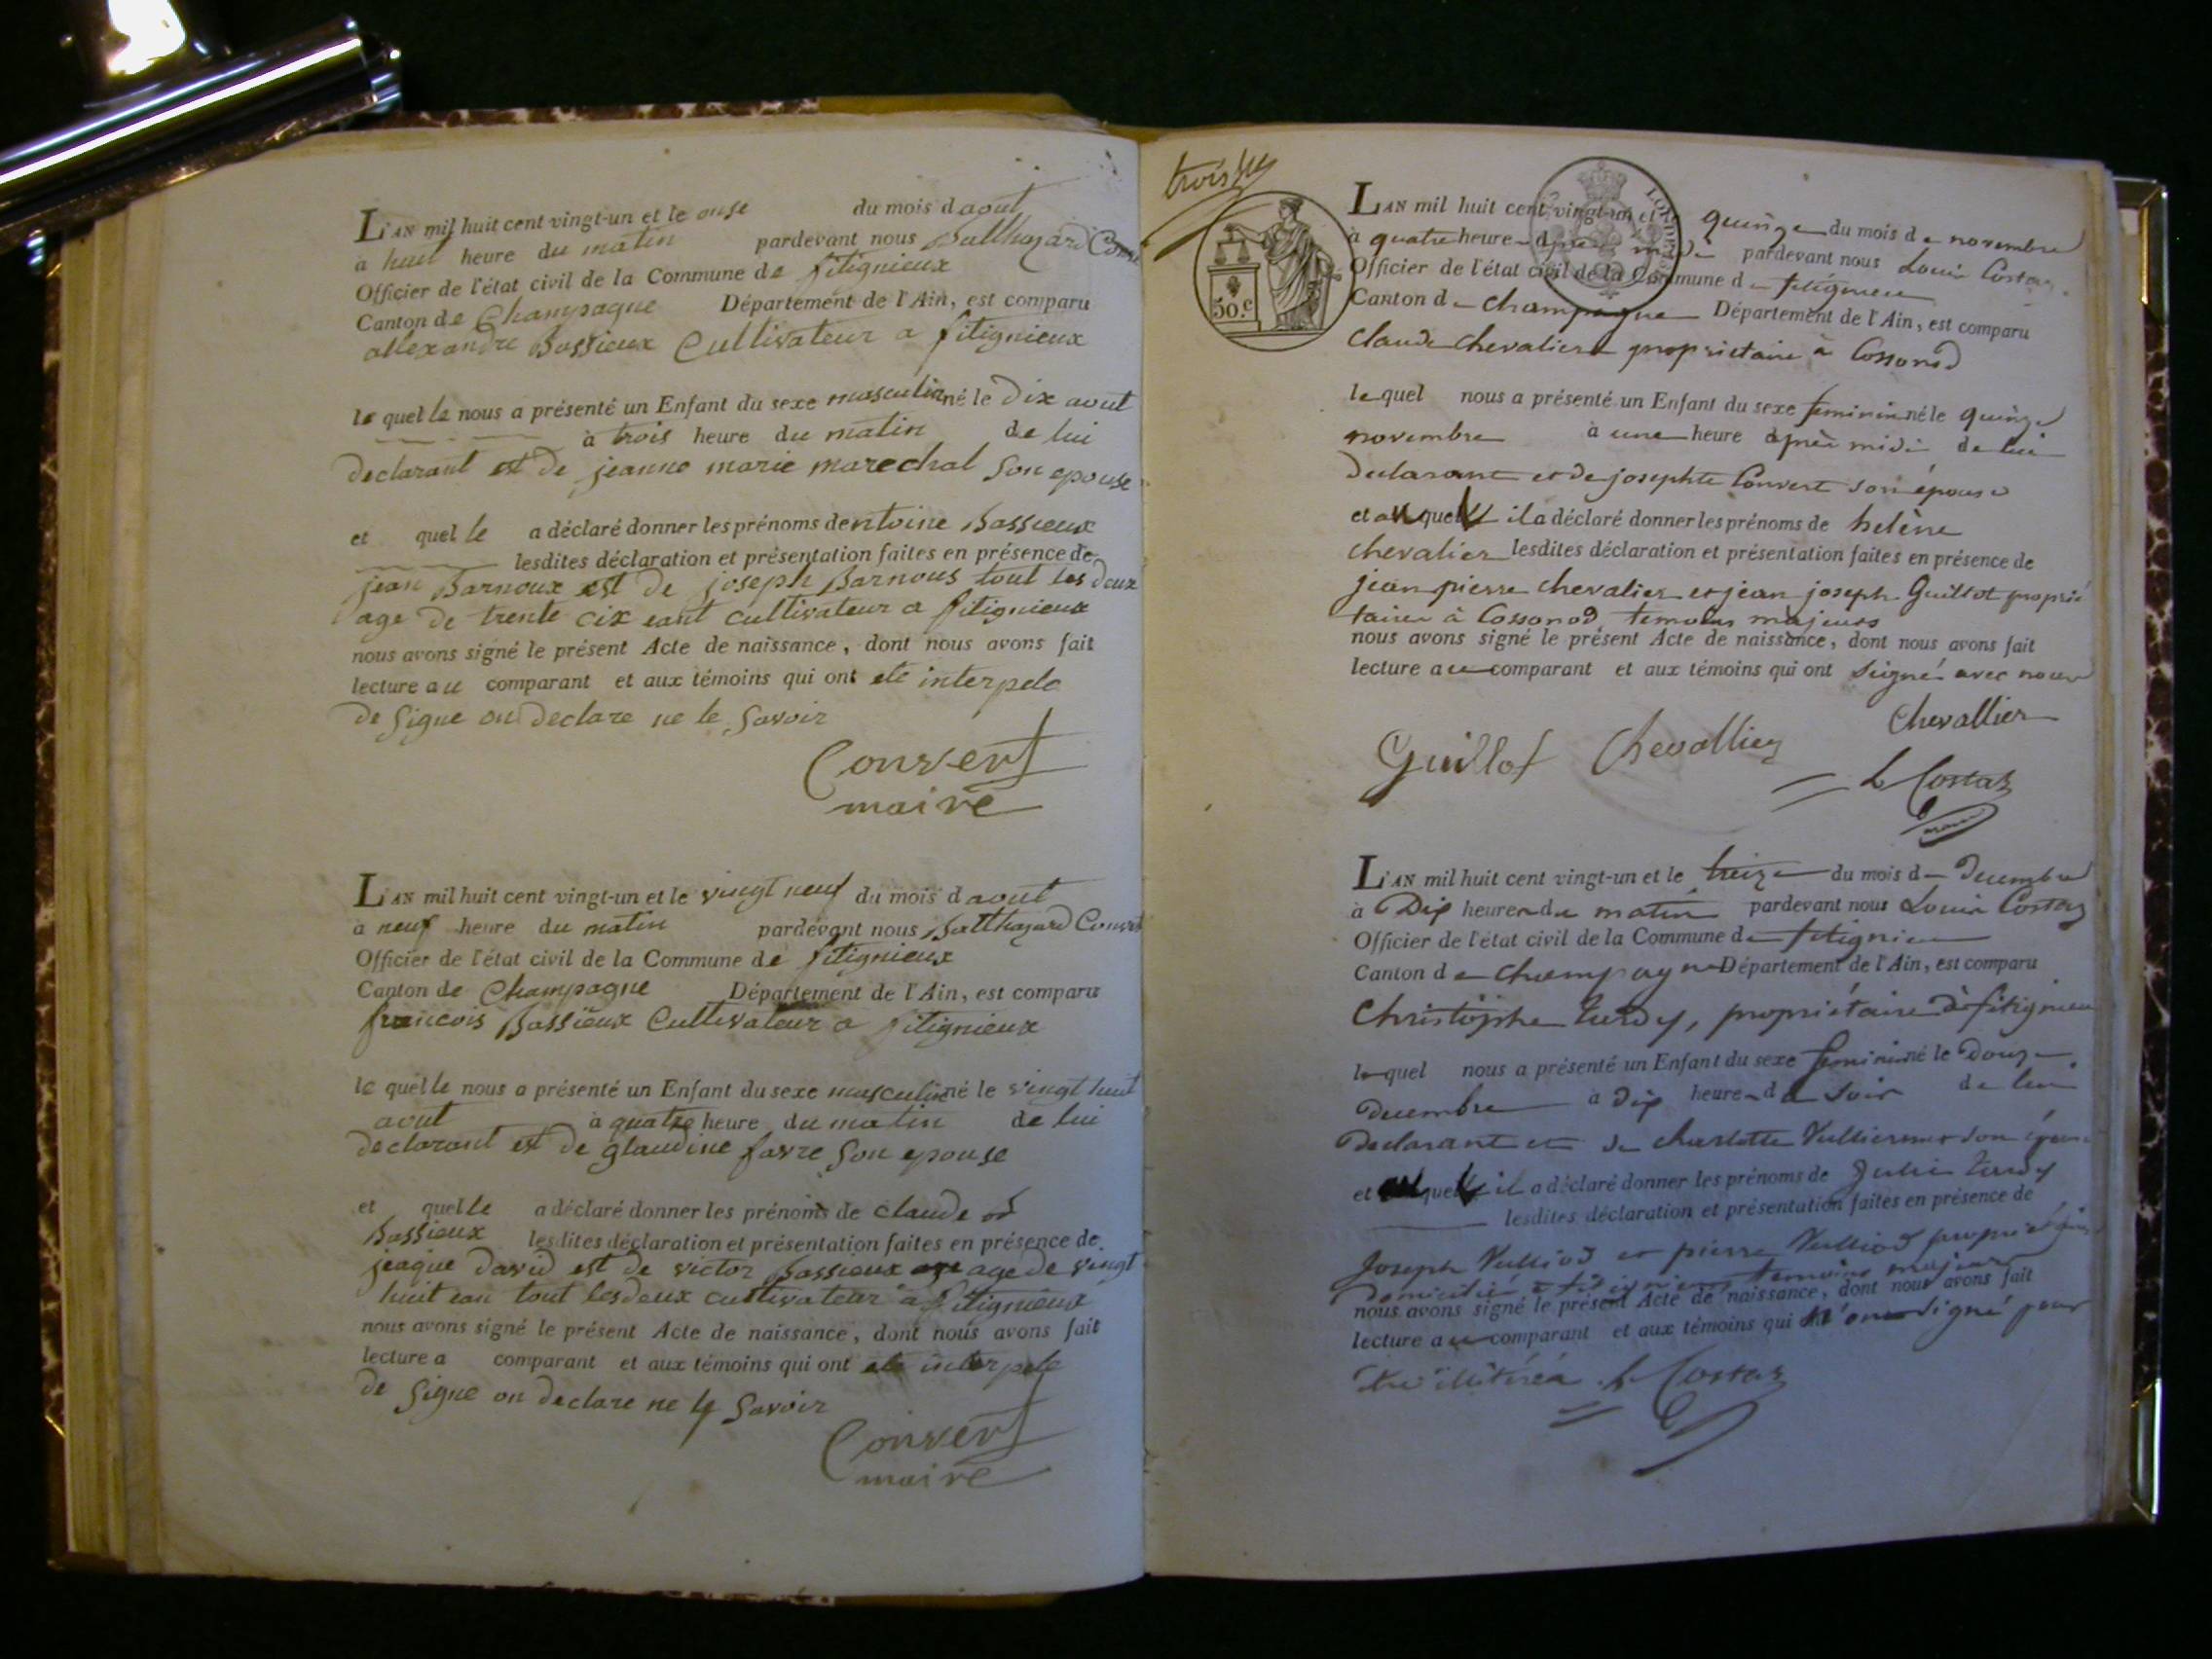 L'AN mil huit cent vingt-un et le onse du mois d aout
a huit heure du matin pardevant nous Balthazard
Officier de l'état civil de la Commune de fitignieux
Canton de Champagne Département de l'Ain, est comparu
allexandre Bassieux Cultivateur a fitignieux
le quel le nous a présenté un Enfant du sexe masculin né le Dix aout
à trois heure du matin de lui
declarant est de jeanne marie marechal Son epouse
et quel le a déclaré donner les prénoms de ntoine Bassieux
lesdites déclaration et présentation faites en présence de
jean Barnoux est de joseph Barnous tout les deux
age de trente cix eant cultivateur a fitignieux
nous avons signé le présent Acte de naissance, dont nous avons fait
lecture a u comparant et aux témoins qui ont ete interpele
de Signe on declare ne le Savoir
Convert
maire
L'AN mil huit cent vingt-un et le vingt neuf du mois d aout
à neuf heure du matin pardevant nous Balthazard Convert
Officier de l'état civil de la Commune de fitignieux
Canton de Champagne Département de l'Ain, est comparu
francois Bassieux Cultivateur a fitignieux
le quel le nous a présenté un Enfant du sexe masculin né le vingt huit
aout à quatre heure du matin de lui
declarant est de glaudine favre Son epouse
et quel le a déclaré donner les prénoms de claude
Bassieux lesdites déclaration et présentation faites en présence de
jeaque david est de victor Bassieux age de vingt
huit ean tout les deux cultivateur a fitignieux
nous avons signé le présent Acte de naissance, dont nous avons fait
lecture a comparant et aux témoins qui ont ete interpele
de Signe on declare ne le Savoir
Convert
maire
trois
50 c
L'AN mil huit cent vingt-un et quinze du mois de novembre
à quatre heure après midi pardevant nous Louis Costaz
Officier de l'état civil de la Commune de fitignieu
Canton de champagne Département de l'Ain, est comparu
claude chevalier propriétaire à Cossonod
le quel nous a présenté un Enfant du sexe feminin né le quinze
novembre à une heure après midi de lui
declarant et de josephte Convert son épouse
et quel il a déclaré donner les prénoms de helène
chevalier lesdites déclaration et présentation faites en présence de
jean pierre chevalier et jean joseph Guillot proprié
taires à Cossonod, temoins majeurs
nous avons signé le présent Acte de naissance, dont nous avons fait
lecture au comparant et aux témoins qui ont signé avec nous
Chevallier
Guillot Chevallier
L Costaz
maire
L'AN mil huit cent vingt-un et le treize du mois de Decembre
à Dix heures du matin pardevant nous Louis Costaz
Officier de l'état civil de la Commune de fitignieu
Canton de champagne Département de l'Ain, est comparu
Christôphe turdy, propriétaire à fitignieu
le quel nous a présenté un Enfant du sexe feminin né le Douze
Decembre à Dix heures du soir de lui
Declarant et de charlotte Vulliermos son épouse
et quel il a déclaré donner les prénoms de Julie turdy
lesdites déclaration et présentation faites en présence de
Joseph Vulliod et pierre Vulliod propriétaires
Domicilié a fitignieux temoins majeurs
nous avons signé le présent Acte de naissance, dont nous avons fait
lecture au comparant et aux témoins qui n'ont signé pour
être illitérés L Costaz